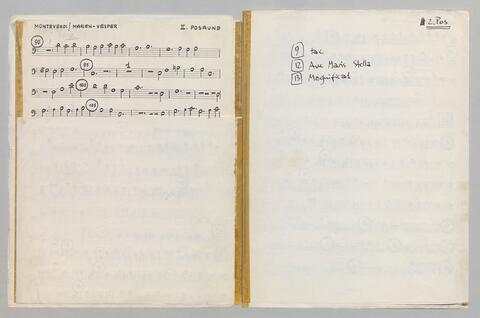 MONTEVERDI / MARIEN-VESPER II. POSAUNE
90
95
1
100
105
2. Pos
9 tac
12 Ave Maris Stella
13 Magnificat